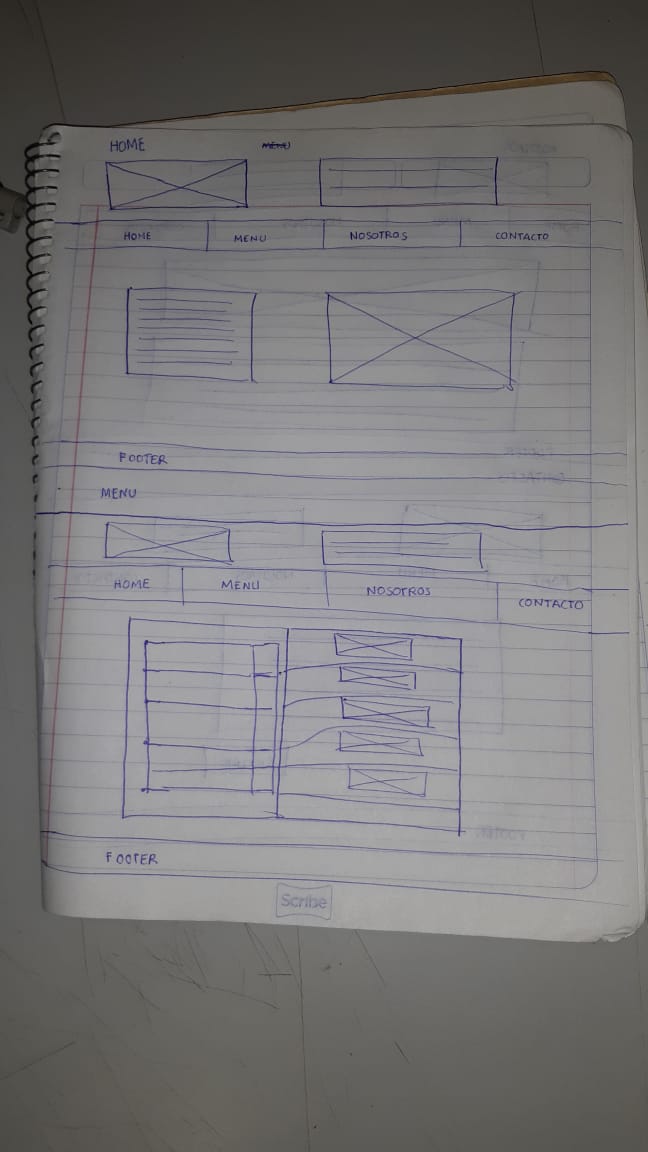 HOME MENU
HOME MENU NOSOTROS CONTACTO
FOOTER
MENU
HOME MENU NOSOTROS CONTACTO
FOOTER
Scribe